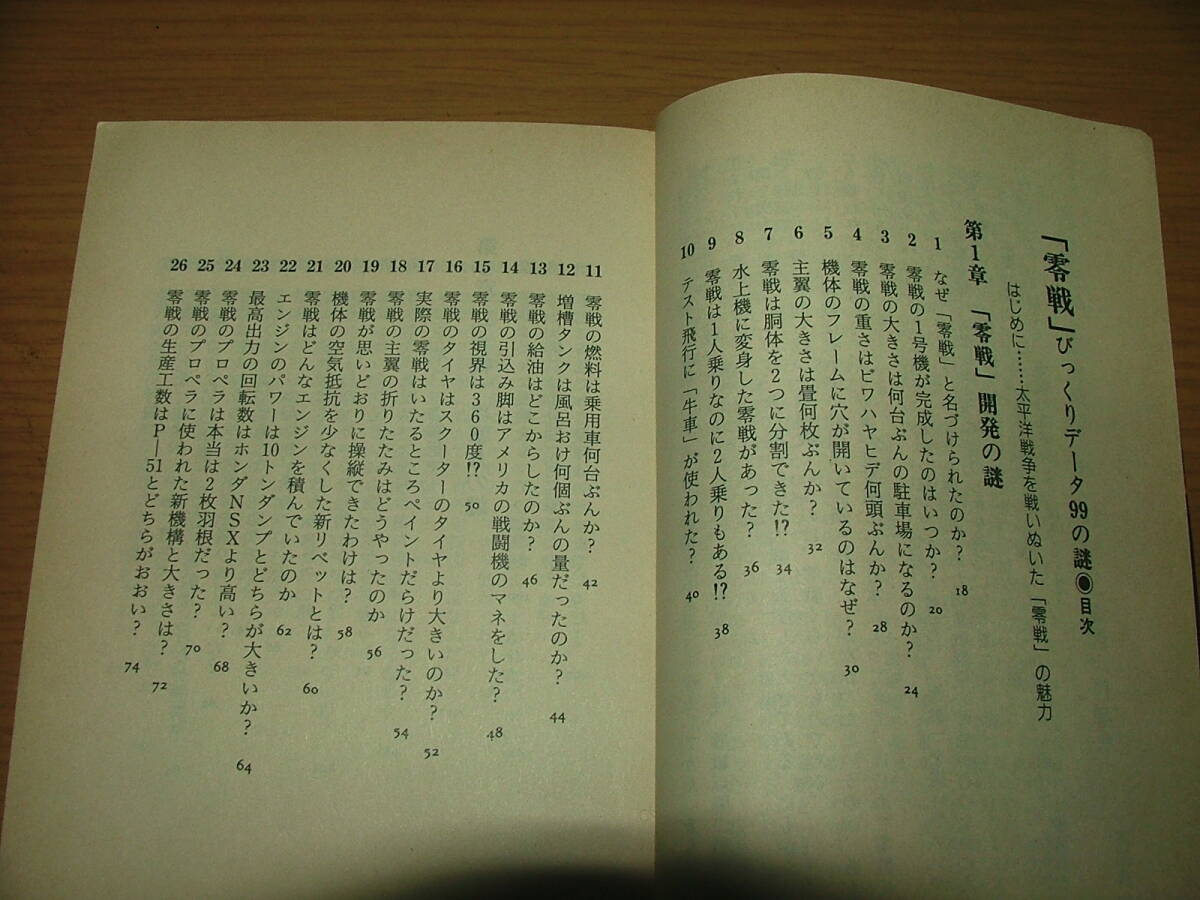 「零戦」びっくりデータ99の謎◉目次
はじめに……太平洋戦争を戦いぬいた「零戦」の魅力
第1章 「零戦」開発の謎
1 なぜ「零戦」と名づけられたのか？ 18
2 零戦の1号機が完成したのはいつか？ 20
3 零戦の大きさは何台ぶんの駐車場になるのか？ 24
4 零戦の重さはビワハヤヒデ何頭ぶんか？ 28
5 機体のフレームに穴が開いているのはなぜ？ 30
6 主翼の大きさは畳何枚ぶんか？ 32
7 零戦は胴体を2つに分割できた!? 34
8 水上機に変身した零戦があった？ 36
9 零戦は1人乗りなのに2人乗りもある!? 38
10 テスト飛行に「牛車」が使われた？ 40
11 零戦の燃料は乗用車何台ぶんか？ 42
12 増槽タンクは風呂おけ何個ぶんの量だったのか？ 44
13 零戦の給油はどこからしたのか？ 46
14 零戦の引込み脚はアメリカの戦闘機のマネをした？ 48
15 零戦の視界は360度!? 50
16 零戦のタイヤはスクーターのタイヤより大きいのか？ 52
17 実際の零戦はいたるところペイントだらけだった？ 54
18 零戦の主翼の折りたたみはどうやったのか 56
19 零戦が思いどおりに操縦できたわけは？ 58
20 機体の空気抵抗を少なくした新リベットとは？ 60
21 零戦はどんなエンジンを積んでいたのか 62
22 エンジンのパワーは10トンダンプとどちらが大きいか？ 64
23 最高出力の回転数はホンダNSXより高い？ 68
24 零戦のプロペラは本当は2枚羽根だった？ 70
25 零戦のプロペラに使われた新機構と大きさは？ 72
26 零戦の生産工数はP—51とどちらがおおい？ 74